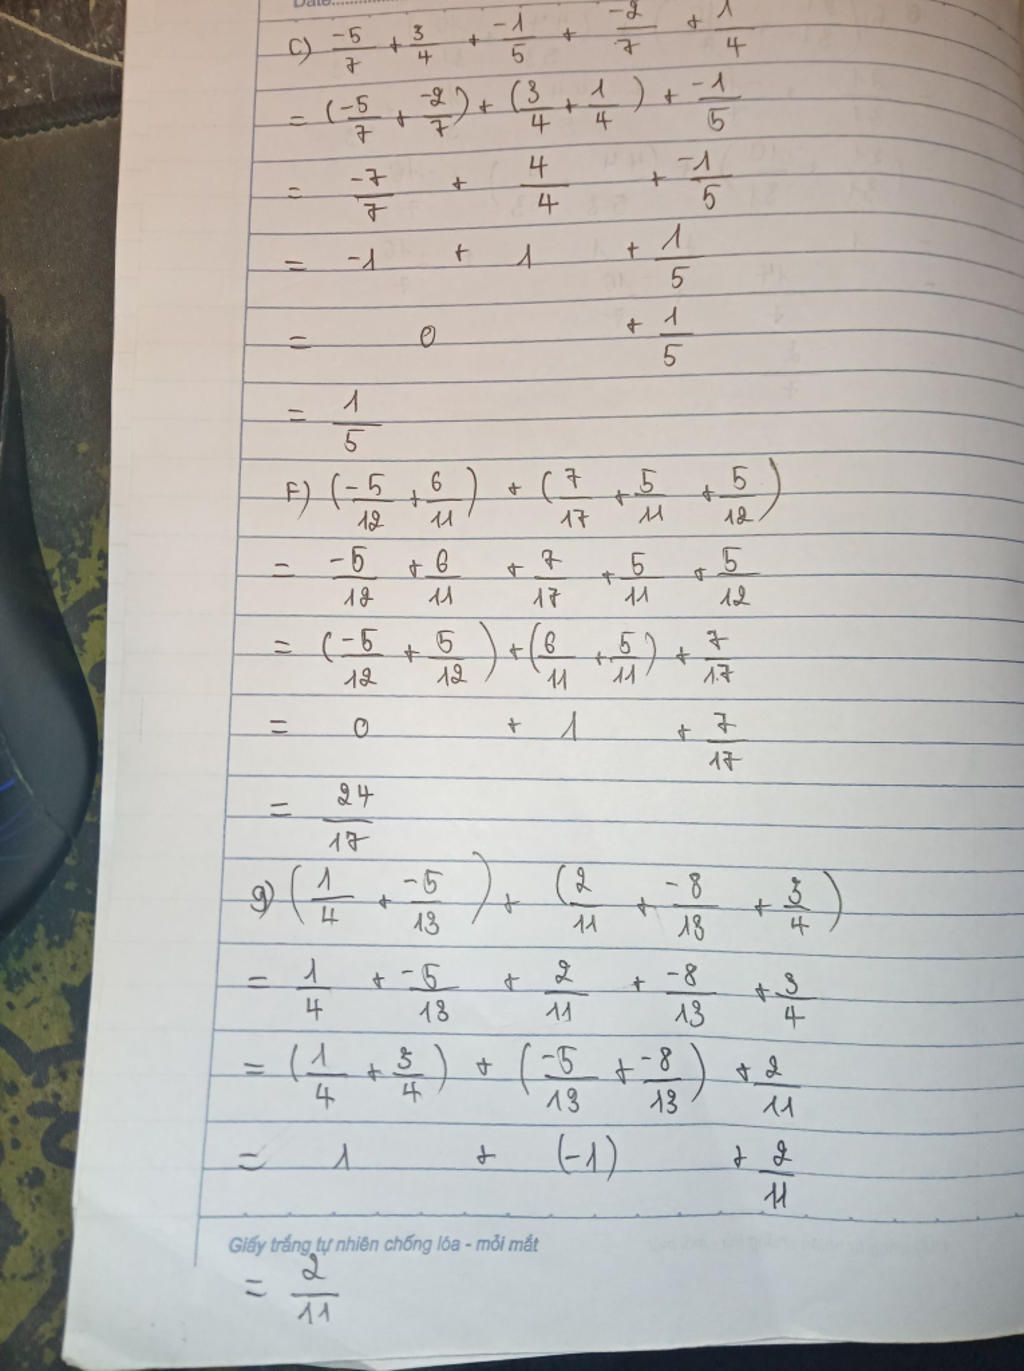 Date..........
c) -5/7 + 3/4 + -1/5 + -2/7 + 1/4
= (-5/7 + -2/7) + (3/4 + 1/4) + -1/5
= -7/7 + 4/4 + -1/5
= -1 + 1 + 1/5
= 0 + 1/5
= 1/5
F) (-5/12 + 6/11) + (7/17 + 5/11 + 5/12)
= -5/12 + 6/11 + 7/17 + 5/11 + 5/12
= (-5/12 + 5/12) + (6/11 + 5/11) + 7/17
= 0 + 1 + 7/17
= 24/17
g) (1/4 + -5/13) + (2/11 + -8/13 + 3/4)
= 1/4 + -5/13 + 2/11 + -8/13 + 3/4
= (1/4 + 3/4) + (-5/13 + -8/13) + 2/11
= 1 + (-1) + 2/11
Giấy trắng tự nhiên chống lóa - mỏi mắt
= 2/11